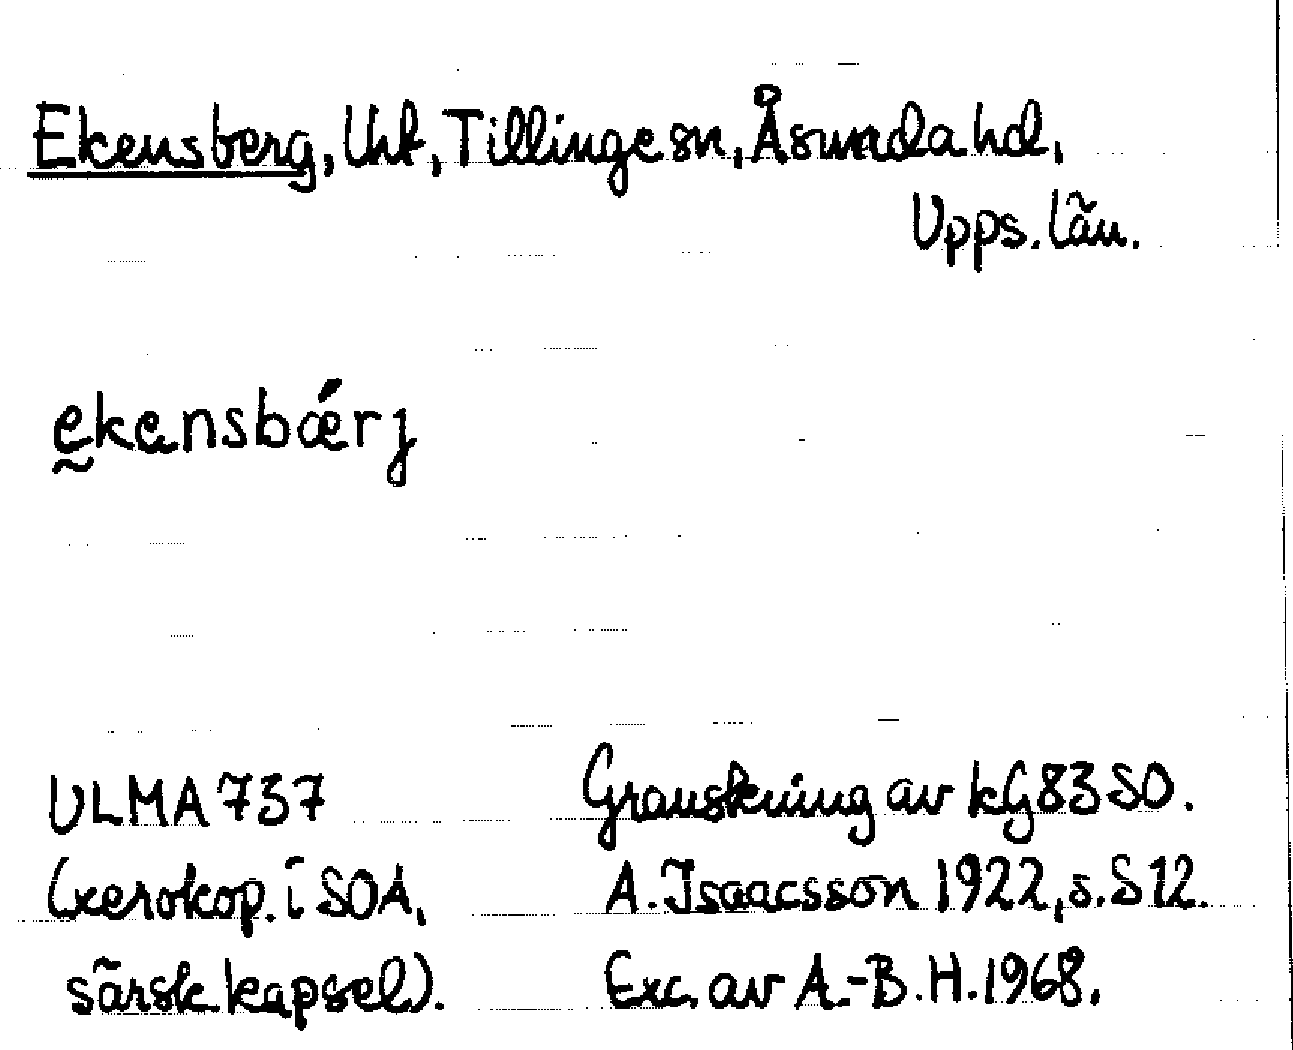 Ekensberg, Uht, Tillinge sn, Åsunda hd,
Upps. län.
ekensbǽrj
ULMA 737
(xerokop. i SOA,
särsk. kapsel).
Granskning av kG83 SO.
A. Isaacsson 1922, s. S 12.
Exc. av A.-B. H. 1968.